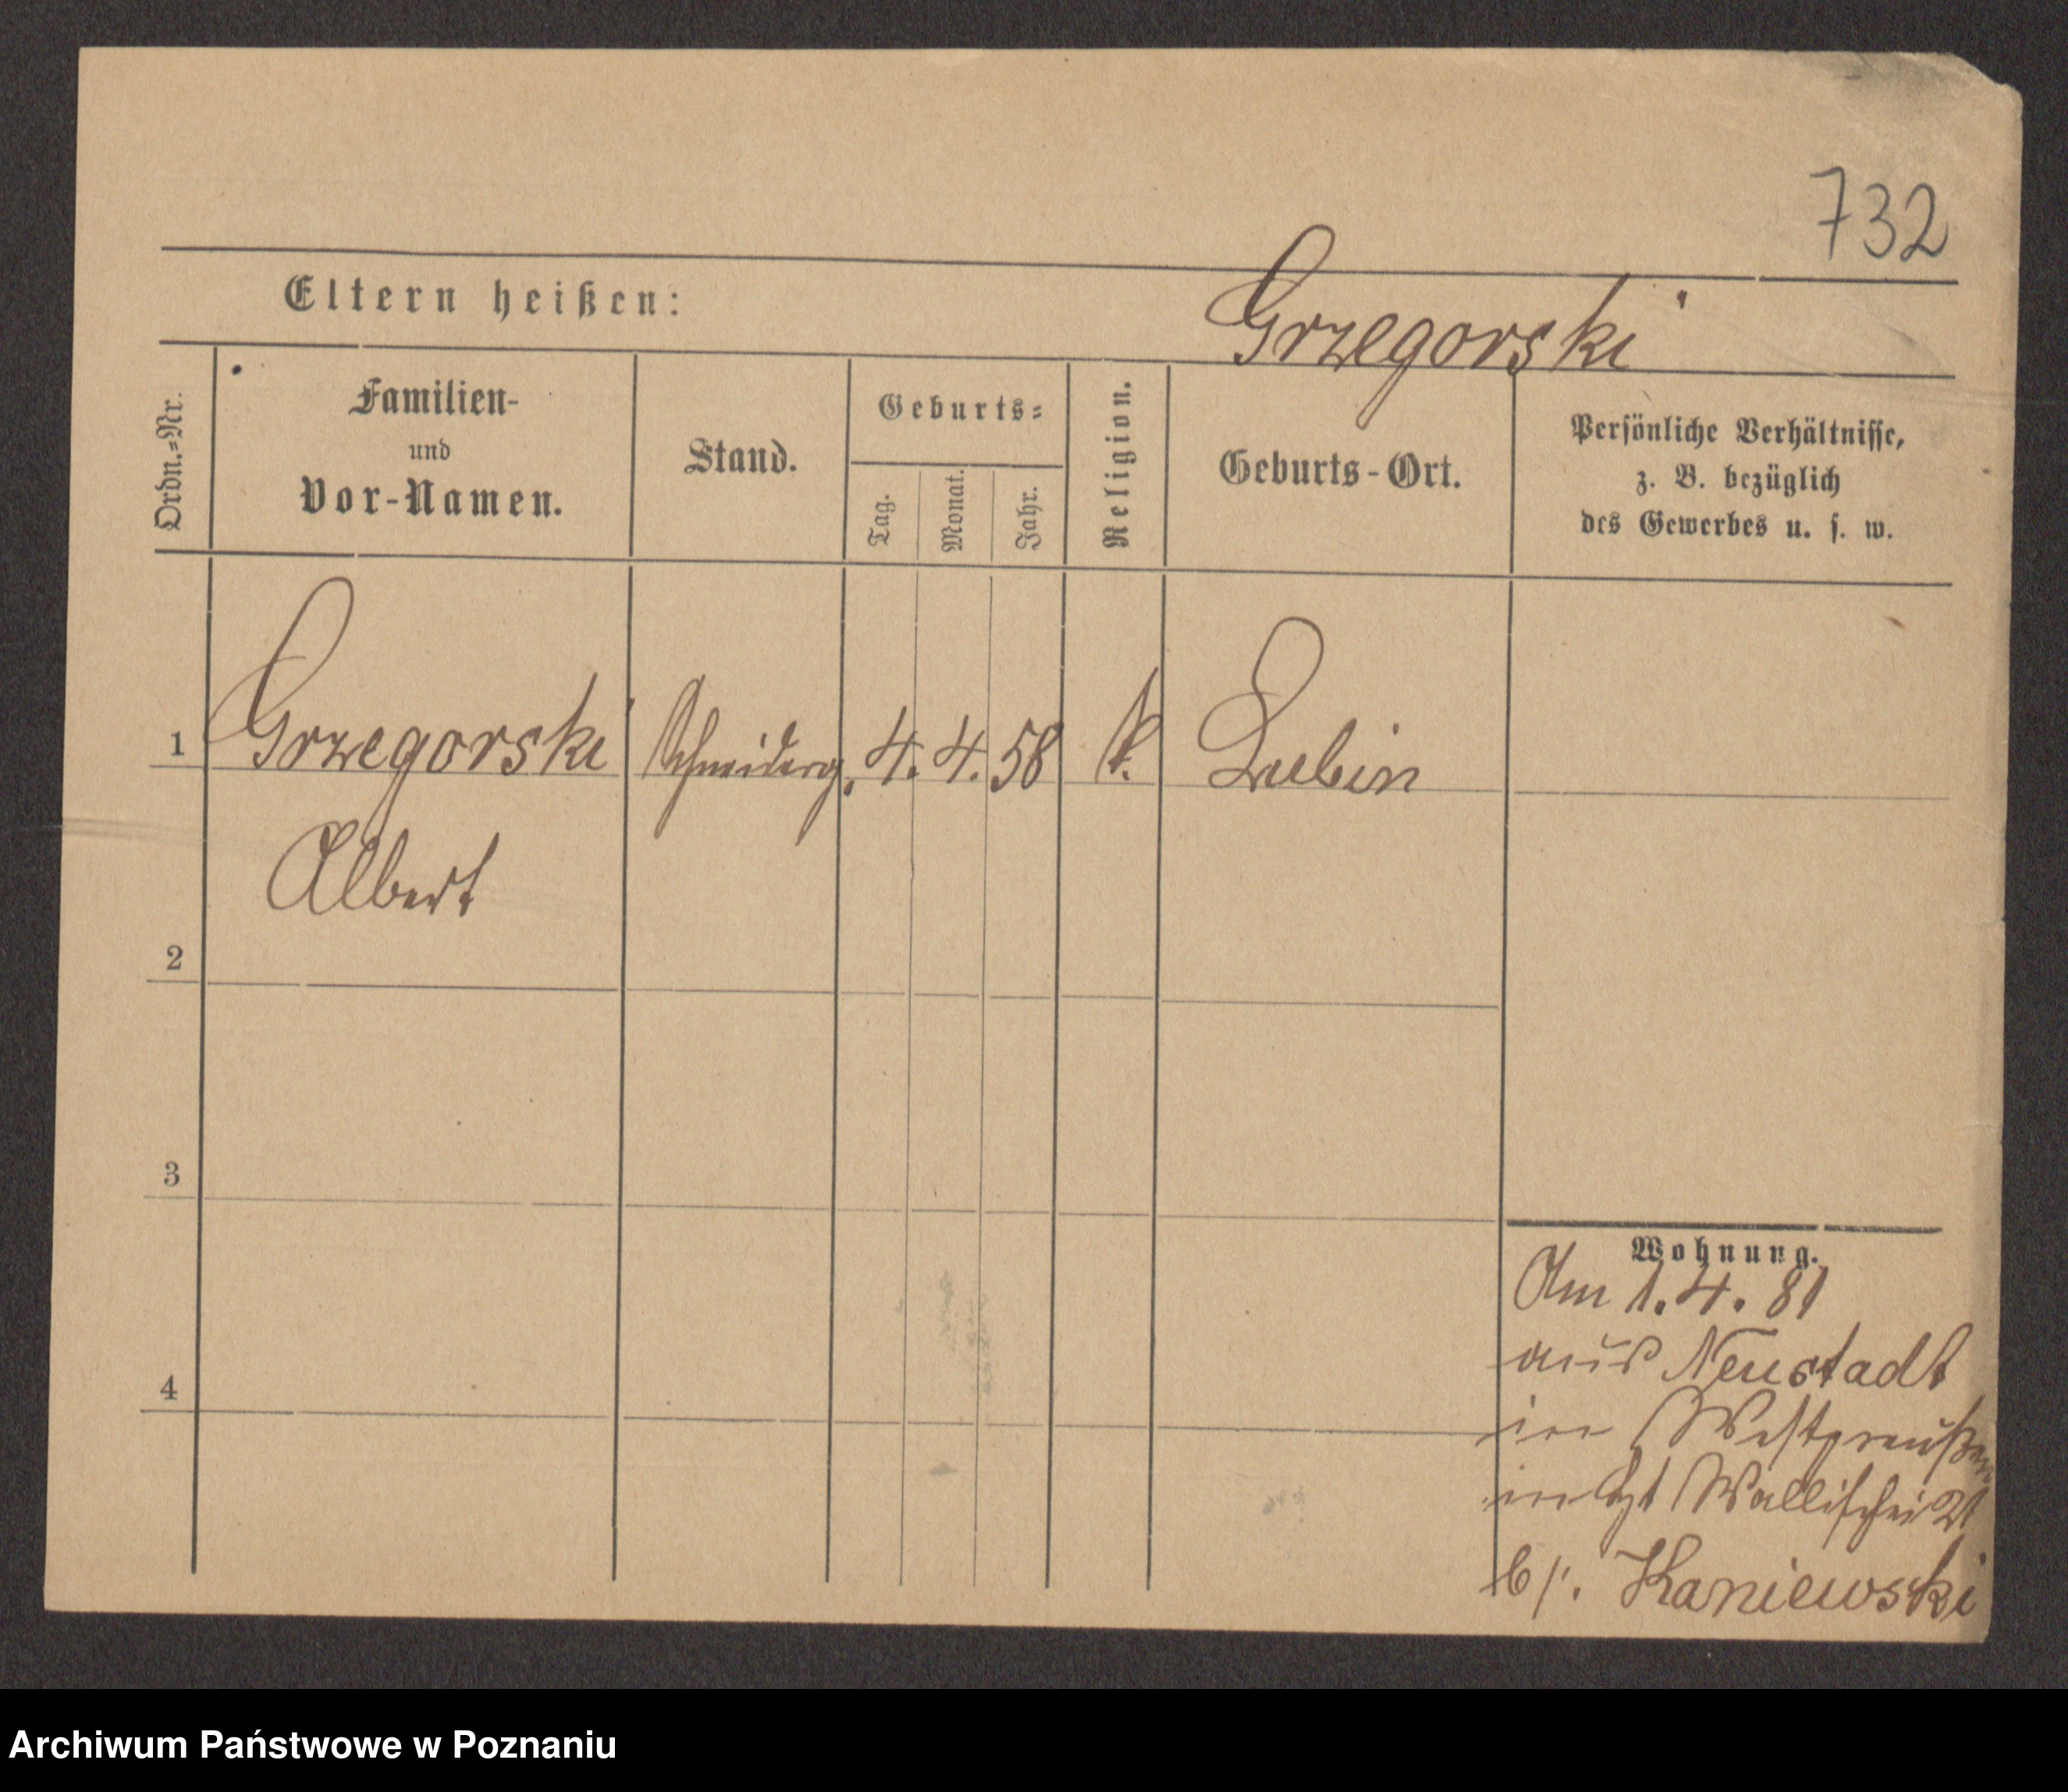 732
Eltern heißen:
Grzegorski
Ordn.=Nr.
Familien-
und
Vor-Namen.
Stand.
Geburts=
Tag.
Monat.
Jahr.
Religion.
Geburts-Ort.
Persönliche Verhältnisse,
z. B. bezüglich
des Gewerbes u. s. w.
1 Grzegorski Schneiderg. 4. 4. 58 k. Lubin
Albert
2
3
4
Wohnung.
Am 1. 4. 81
aus Neustadt
in Westpreußen
Wallischei
b/. Kaniewski
Archiwum Państwowe w Poznaniu